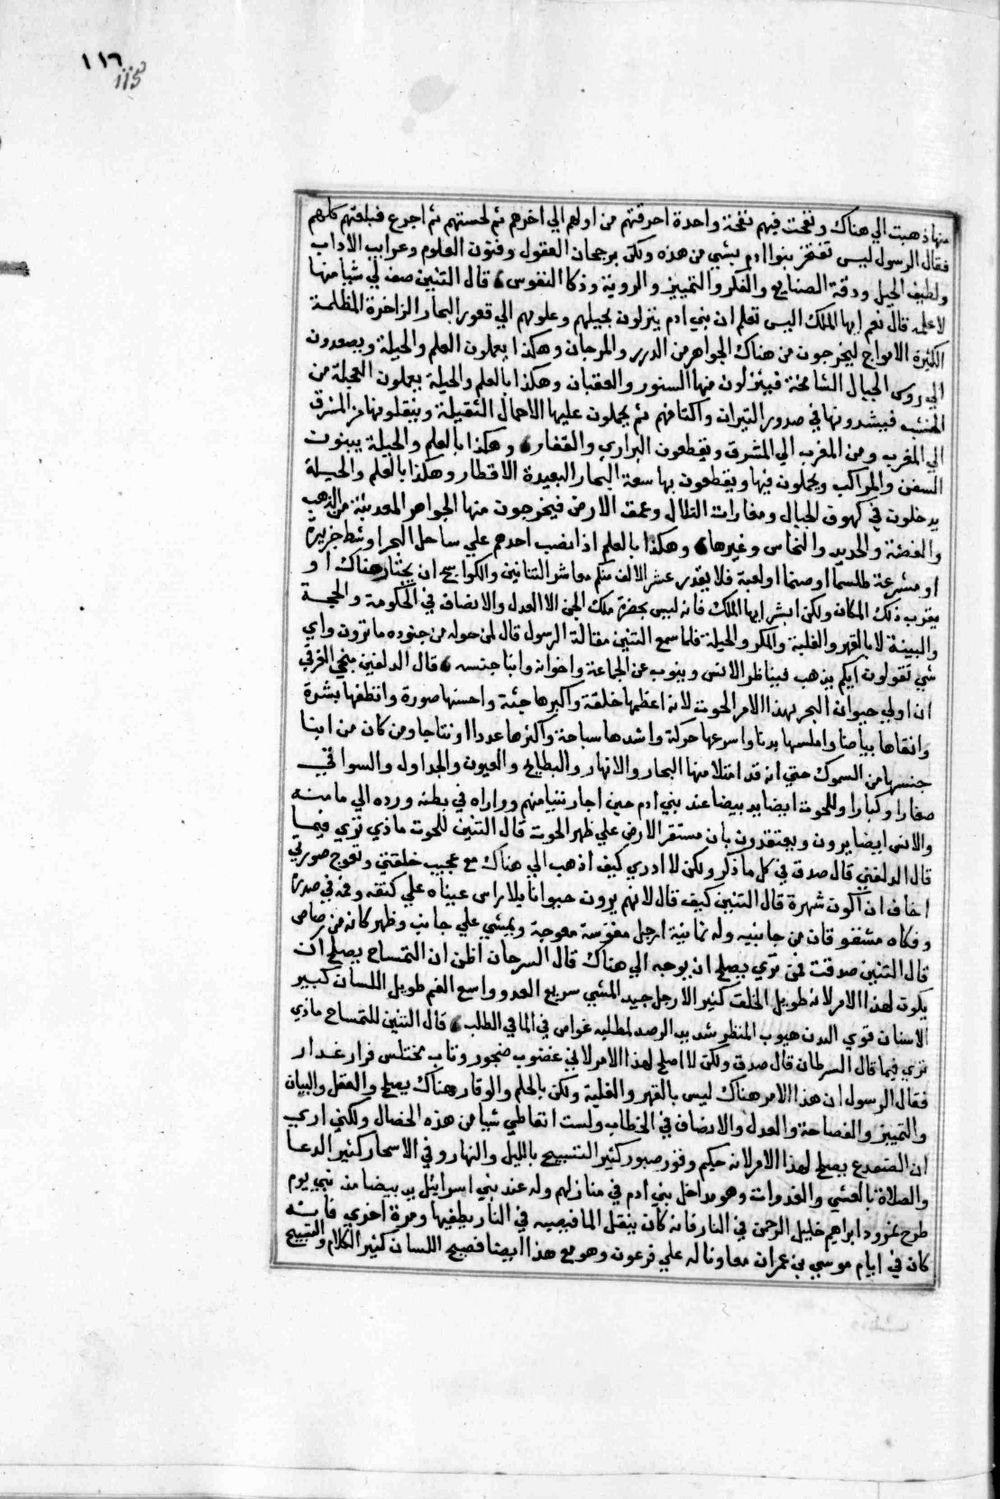 ١١٦
115
منها ذهبت الي هناك ونفخت فيهم نفخة واحدة احرقتهم من اولهم الي اخرهم ثم لحستهم ثم اجرع فبلعتهم كلهم
فقال الرسول ليس تفتخر بنوا ادم بشي من هذه ولكن برجحان العقول وفنون العلوم وغرايب الاداب
ولطيف الحيل ودقة الصنايع والفكر والتمييز والروية وذكا النفوس قال التنين صف لي شيا منها
لاعلمه قال نعم ايها الملك اليس تعلم ان بني ادم ينزلون بحيلهم وعلومهم الي قعور البحار الزاخرة المظلمة
الكثيرة الامواج ليخرجون من هناك الجواهر من الدرر والمرجان وهكذا يعملون العلم والحيلة ويصعدون
الي روس الجبال الشامخة فينزلون منها النسور والعقبان وهكذا بالعلم والحيلة يعملون العجلة من
الخشب فيشدونها في صدور الثيران واكتافهم ثم يحملون عليها الاحمال الثقيلة وينقلونها من المشرق
الي المغرب ومن المغرب الي المشرق ويقطعون البراري والقفار وهكذا بالعلم والحيلة يبنون
السفن والمراكب ويحملون فيها ويقطعون بها سعة البحار البعيدة الاقطار وهكذا بالعلم والحيلة
يدخلون في كهوف الجبال ومغارات التلال وعمق الارض فيخرجون منها الجواهر المعدنية من الذهب
والفضة والحديد والنحاس وغيرها وهكذا بالعلم اذا نصب احدهم علي ساحل البحر او شط جزيرة
او مشرعة طلسما او صنما او لعبة فلا يقدر عشر الالف منكم معاشر التنانين والكواسج ان يجتاز هناك او
يقرب ذلك المكان ولكن ابشر ايها الملك فانه ليس بحضرة ملك الجن الا العدل والانصاف في الحكومة والحجة
والبينة لا بالقهر والغلبة والمكر والحيلة فلما سمع التنين مقالة الرسول قال لمن حوله من جنوده ما ترون واي
شي تقولون ايكم يذهب فيناظر الانس وينوب عن الجماعة واخوانه وابنا جنسه قال الدلفين منجي الغرقي
ان اولي حيوان البحر بهذا الامر الحوت لانه اعظمها خلقة واكبرها جثة واحسنها صورة وانظفها بشرة
وانقاها بياضا واملسها بدنا واسرعها حركة واشدها سباحة واكثرها عددا او نتاجا ومن كان من ابنا
جنسها من السموك حتي انه قد امتلا منها البحار والانهار والبطايح والعيون والجداول والسواقي
صغارا وكبارا وللحوت ايضا يد بيضا عند بني ادم حين اجار نبيا منهم وواراه في بطنه ورده الي مامنه
والانس ايضا يرون ويعتقدون بان مستقر الارض علي ظهر الحوت قال التنين للحوت ماذي تري فيما
قال الدلفين قال صدق في كل ما ذكر ولكن لا ادري كيف اذهب الي هناك مع عجيب خلقتي وتعوج صورتي
اخاف ان اكون شهرة قال التنين كيف قال لانهم يرون حيوانا بلا راس عيناه علي كتفه وفمه في صدره
وفكاه مشقوقان من جانبيه وله ثمانية ارجل مقوسة معوجة ويمشي علي جانب وظهر كانه من رصاص
قال التنين صدقت فمن تري يصلح ان يوجه الي هناك قال السرطان اظن ان التمساح يصلح ان
يكون لهذا الامر لانه طويل الخلق كثير الارجل جيد المشي سريع العدو واسع الفم طويل اللسان كبير
الاسنان قوي البدن هيوب المنظر شديد الرصد لمطلبه غواص في الما في الطلب قال التنين للتمساح ماذي
تري فيما قال السرطان قال صدق ولكن لا اصلح لهذا الامر لاني غضوب ضجور وثاب مختلس فرار غدار
فقال الرسول ان هذا الامر هناك ليس بالقهر والغلبة ولكن بالحلم والوقار هناك يصلح والعقل والبيان
والتمييز والفصاحة والعدل والانصاف في الخطاب ولست اتعاطي شيا من هذه الخصال ولكني اري
ان الضفدع يصلح لهذا الامر لانه حكيم وقور صبور كثير التسبيح بالليل والنهار وفي الاسحار كثير الدعا
والصلاة بالعشي والغدوات وهو يداخل بني ادم في منازلهم وله عند بني اسرايل يد بيضا منذ نبي يوم
طرح نمرود ابراهيم خليل الرحمن في النار فانه كان ينقل الما فيصبه في النار يطفيها ومرة اخري فانه
كان في ايام موسي بن عمران معاونا له علي فرعون وهو مع هذا ايضا فصيح اللسان كثير الكلام والتسبيح